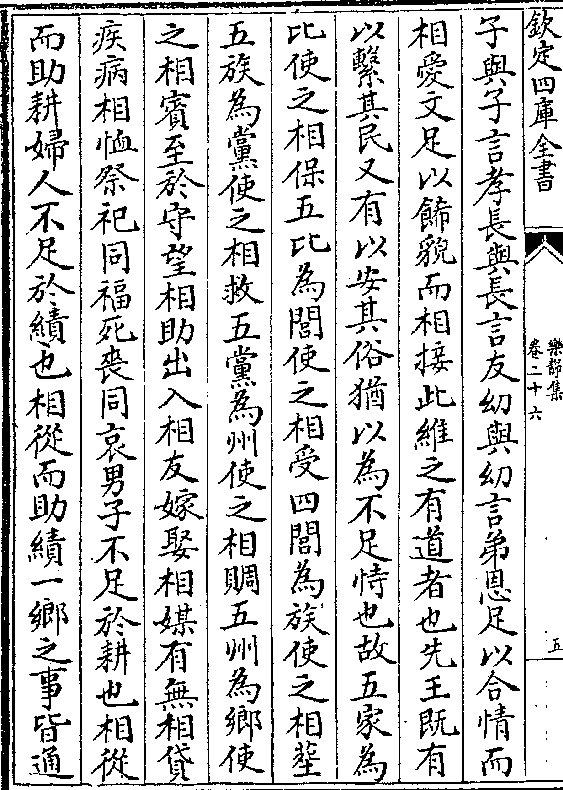 欽定四庫全書
樂静集
卷二十六
五
子與子言孝長與長言友幼與幼言弟恩足以合情而
相愛文足以飾貌而相接此維之有道者也先王既有
以繫其民又有以安其俗猶以為不足恃也故五家為
比使之相保五比為閭使之相受四閭為族使之相塟
五族為黨使之相救五黨為州使之相賙五州為鄉使
之相賓至於守望相助出入相友嫁娶相媒有無相貸
疾病相恤祭祀同福死喪同哀男子不足於耕也相從
而助耕婦人不足於績也相從而助績一鄉之事皆通